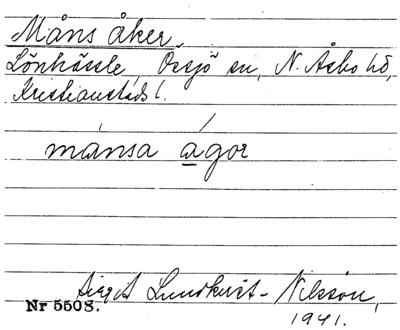 Måns åker
Lönhässle, Örsjö sn, N. Åsbo hd,
Kristianstads l.
månsa ágor
Birgit Lundkvist-Nilsson,
Nr 5508. 1941.